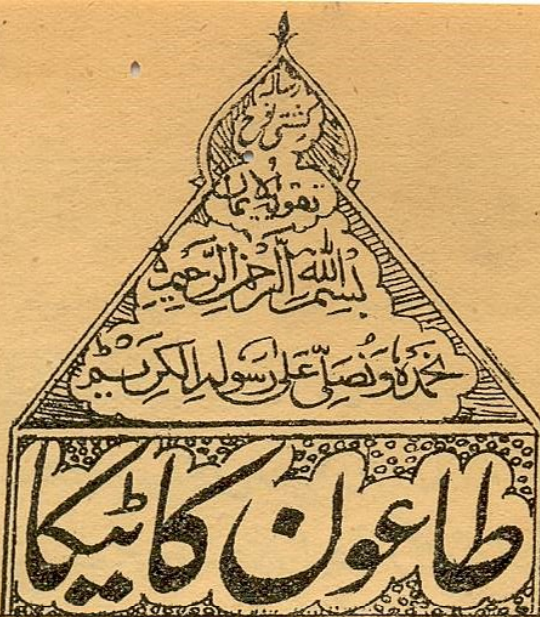 رسالہ
کشتی نوح
تقویۃ الایمان
بِسْمِ اللّٰهِ الرَّحْمٰنِ الرَّحِيْمِ
نَحْمَدُهٗ وَنُصَلِّیْ عَلٰی رَسُولِهِ الْكَرِيْمِ
طاعون کا ٹیکا